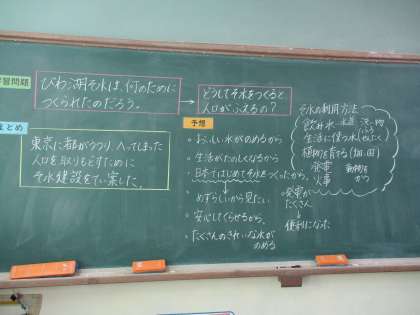 学習問題
びわ湖そ水は、何のために
つくられたのだろう。
どうしてそ水をつくると
人口がふえるの？
まとめ
東京に都がうつり、へってしまった
人口を取りもどすために
そ水建設をてい案した。
予想
・おいしい水がのめるから
・生活がたのしくなるから
・日本ではじめてそ水をつくったから、
めずらしいから見たい
・安心してくらせるから、
・たくさんのきれいな水が
のめる
発電が
たくさん
便利になった
そ水の利用方法
飲み水 水道
生活に使う水(せんたく)
植物を育てる(畑、田)
発電 動物を
火事 かう